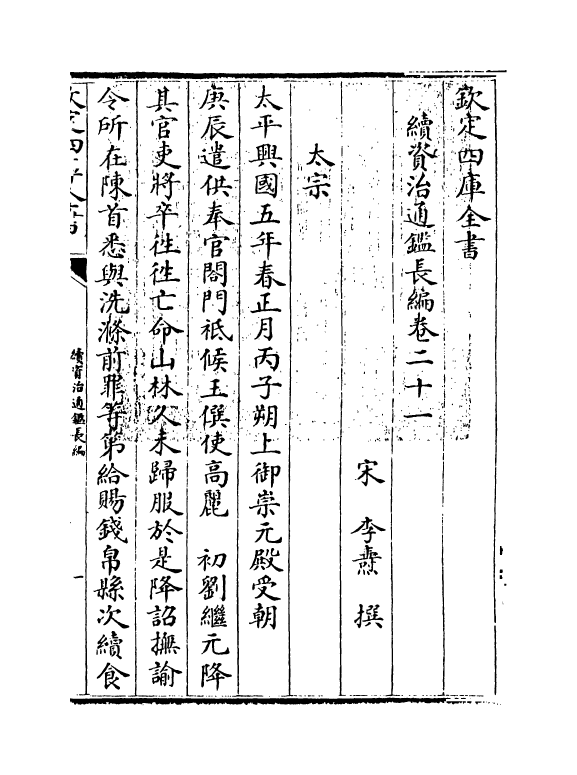 欽定四庫全書
續資治通鑑長編卷二十一
宋 李燾 撰
太宗
太平興國五年春正月丙子朔上御崇元殿受朝
庚辰遣供奉官閤門祗候王僎使高麗 初劉繼元降
其官吏將卒徃徃亡命山林久未歸服於是降詔撫諭
令所在陳首悉與洗滌前罪等第給賜錢帛縣次續食
續資治通鑑長編
一